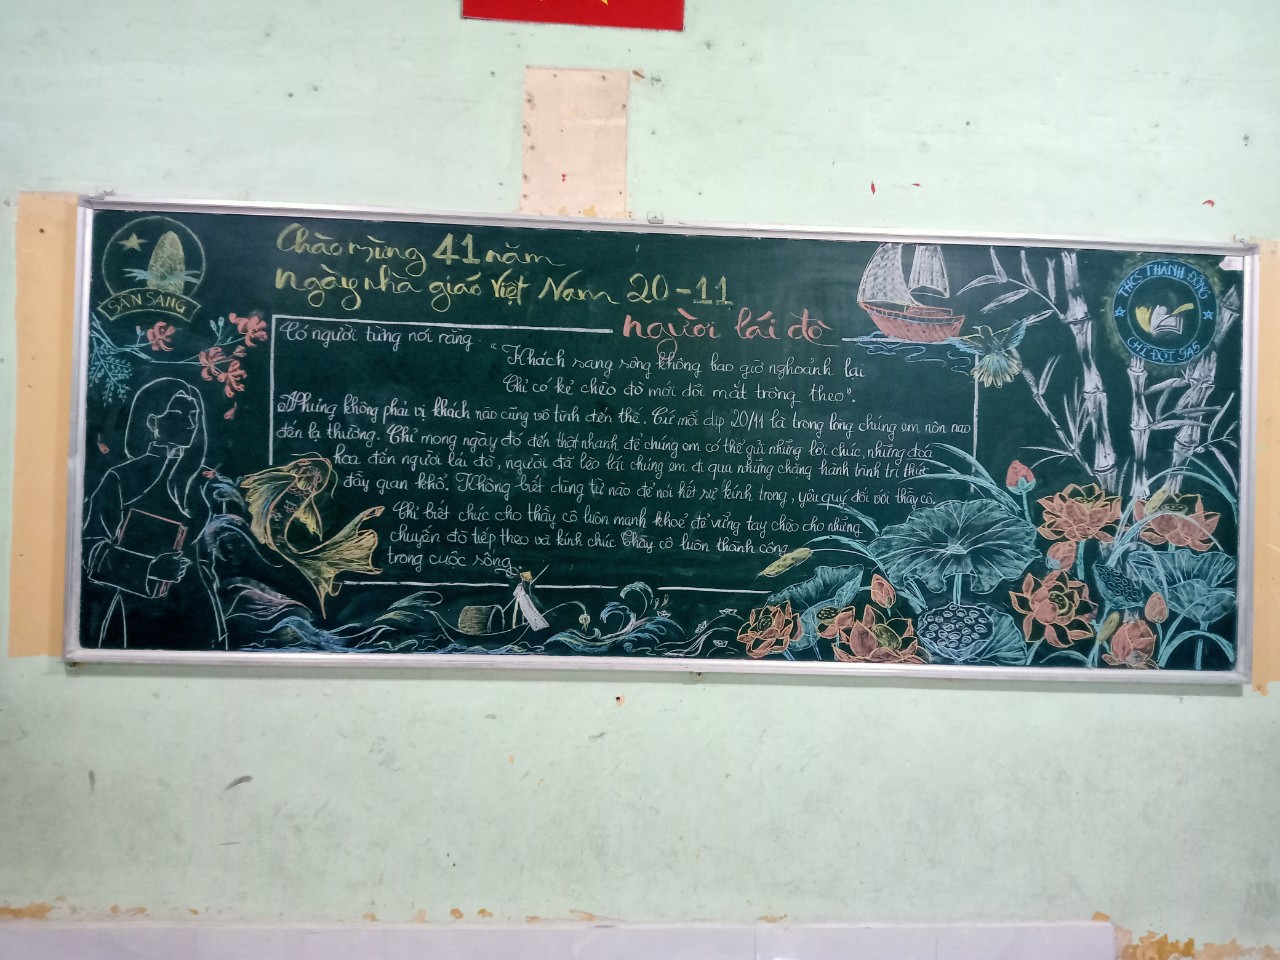 Chào mừng 41 năm
ngày nhà giáo Việt Nam 20-11
SẴN SÀNG
người lái đò
THCS THÀNH ĐÔNG
CHI ĐỘI 9A5
Có người từng nói rằng.
"Khách sang sông không bao giờ nghoảnh lại
Chỉ có kẻ chèo đò mới dõi mắt trông theo".
Nhưng không phải vị khách nào cũng vô tình đến thế. Cứ mỗi dịp 20/11 là trong lòng chúng em nôn nao
đến lạ thường. Chỉ mong ngày đó đến thật nhanh để chúng em có thể gửi những lời chúc, những đoá
hoa đến người lái đò, người đã lèo lái chúng em đi qua những chặng hành trình tri thức
đầy gian khổ. Không biết dùng từ nào để nói hết sự kính trọng, yêu quý đối với thầy cô.
Chỉ biết chúc cho thầy cô luôn mạnh khoẻ để vững tay chèo cho những
chuyến đò tiếp theo và kính chúc Thầy cô luôn thành công
trong cuộc sống.